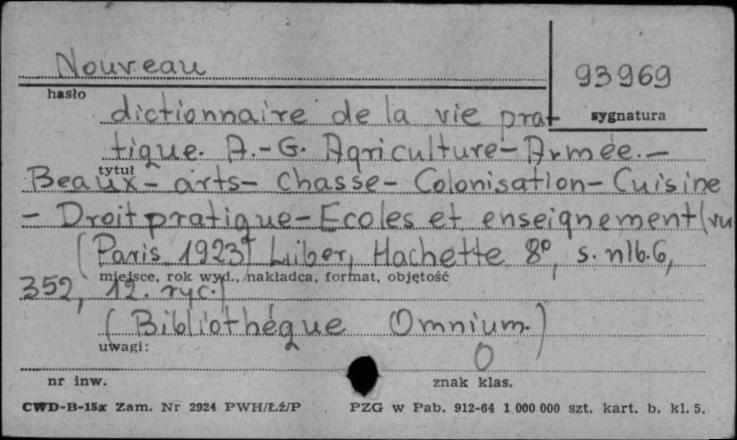 Nouveau
93969
hasło
sygnatura
dictionnaire de la vie prat-
tique. A.-G. Agriculture - Armée. -
tytuł
Beaux - arts - Chasse - Colonisation - Cuisine
- Droit pratique - Ecoles et enseignement (vu
(Paris 1923 Liber, Hachette 8°, s. nlb. 6,
miejsce, rok wyd., nakładca, format, objętość
352, 12. ryc.)
(Bibliothéque Omnium.)
uwagi:
O
nr inw. znak klas.
CWD-B-15x Zam. Nr 2924 PWH/Łź/P PZG w Pab. 912-64 1 000 000 szt. kart. b. kl. 5.